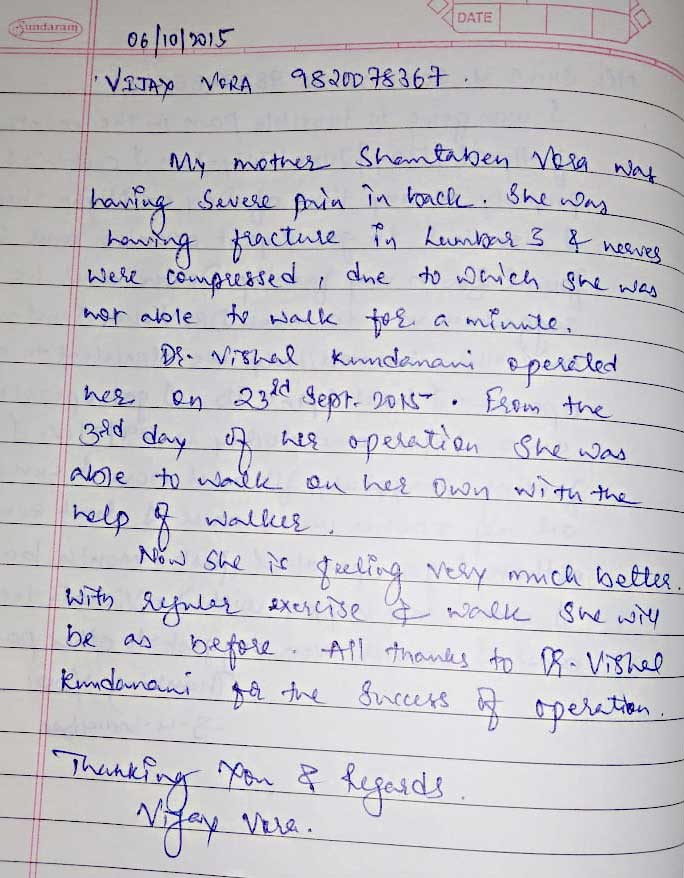 Sundaram
DATE
06/10/2015
VIJAY VORA 9820078367.
My mother Shantaben Vora was
having severe pain in back. She was
having fracture in Lumbar 3 & nerves
were compressed, due to which she was
not able to walk for a minute.
Dr. Vishal Kundanani operated
her on 23rd Sept. 2015. From the
3rd day of her operation she was
able to walk on her own with the
help of walker.
Now she is feeling very much better.
With regular exercise & walk she will
be as before. All thanks to Dr. Vishal
Kundanani for the success of operation.
Thanking You & Regards.
Vijay Vora.